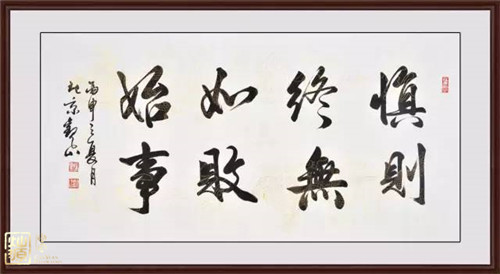 慎終如始
則無敗事
丙申之夏月
京 山